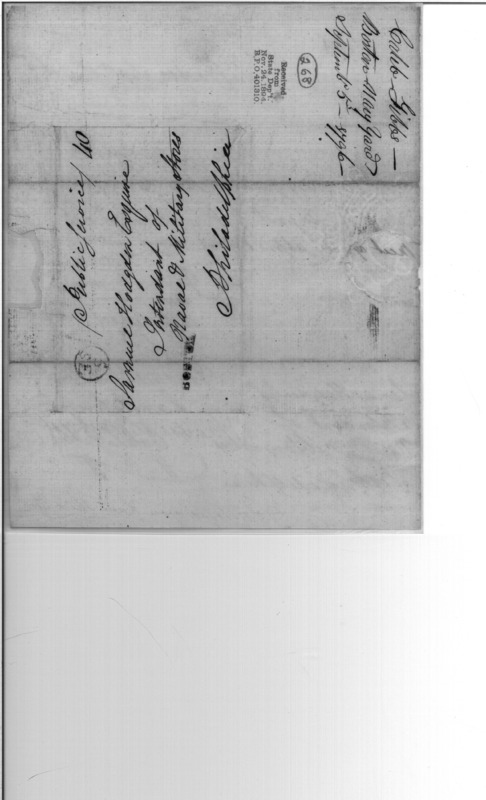 Public Service / 10
Samuel Hodgdon Esquire
Intendant of
Naval & Military Stores
Philadelphia
Caleb Gibbs —
Boston Navy Yard
Septem 5 — 1796 —
268
Received
from
State Dep't.
Nov. 24, 1894.
R.P.O. 401210.